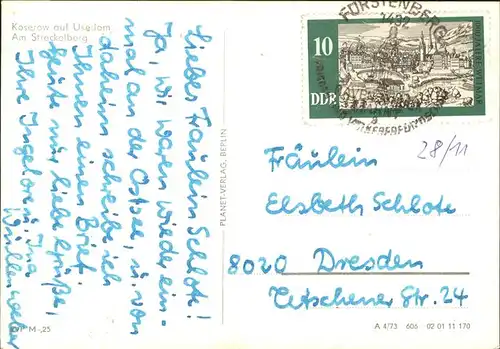 Koserow auf Usedom
Am Streckelberg
Liebes Fräulein Schlote!
Ja, wir waren wieder ein-
mal an der Ostsee, u. von
daheim schreibe ich
Ihnen einen Brief.
Heute nur liebe Grüße,
Ihre Ingelore u. Ina
Wüllenweber
EVP M -,25
PLANET-VERLAG, BERLIN
FÜRSTENBERG
1432
10
DDR
1000 JAHRE WEIMAR
28/11
Fräulein
Elsbeth Schlote
8020 Dresden
Tetschener Str. 24
A 4/73 606 02 01 11 170